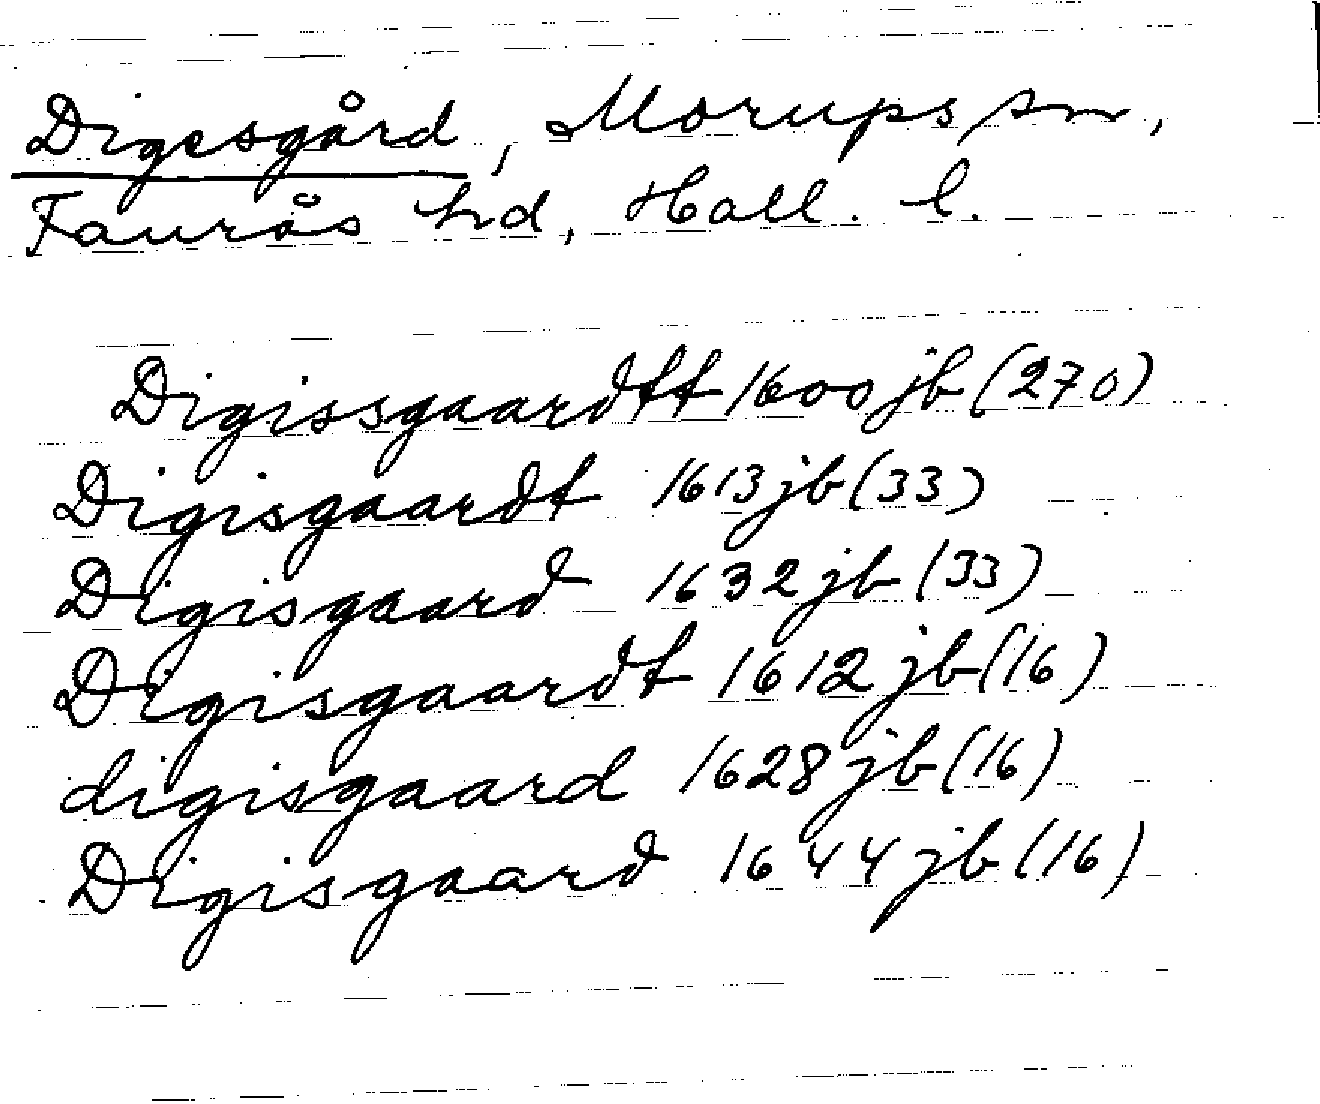 Digesgård, Morups sn,
Faurås hd, Hall. l.
Digissgaardtt 1600 jb (270)
Digisgaardt 1613 jb (33)
Digisgaard 1632 jb (33)
Digisgaardt 1612 jb (16)
digisgaard 1628 jb (16)
Digisgaard 1644 jb (16)